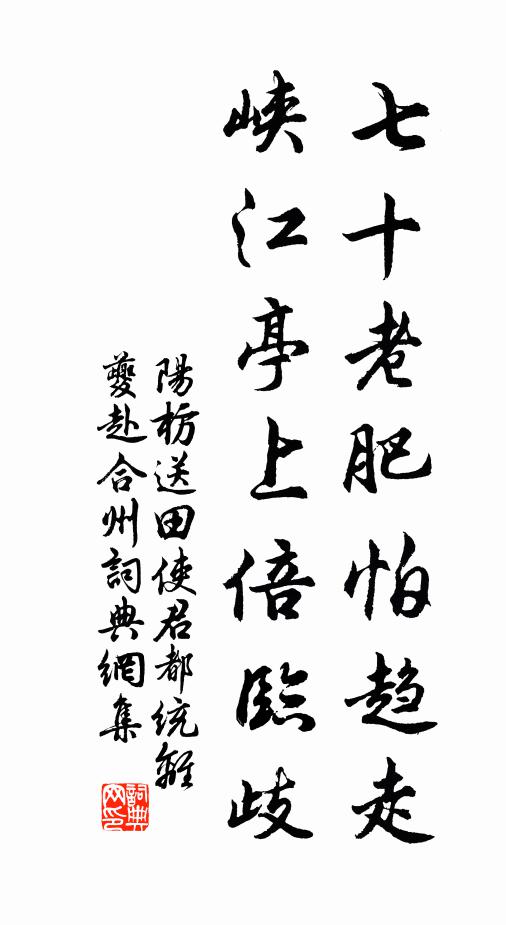 七十老肥怕趨走
峽江亭上倍臨歧
陽枋送田使君都統離
夔赴合州詞典網集
詞典网印